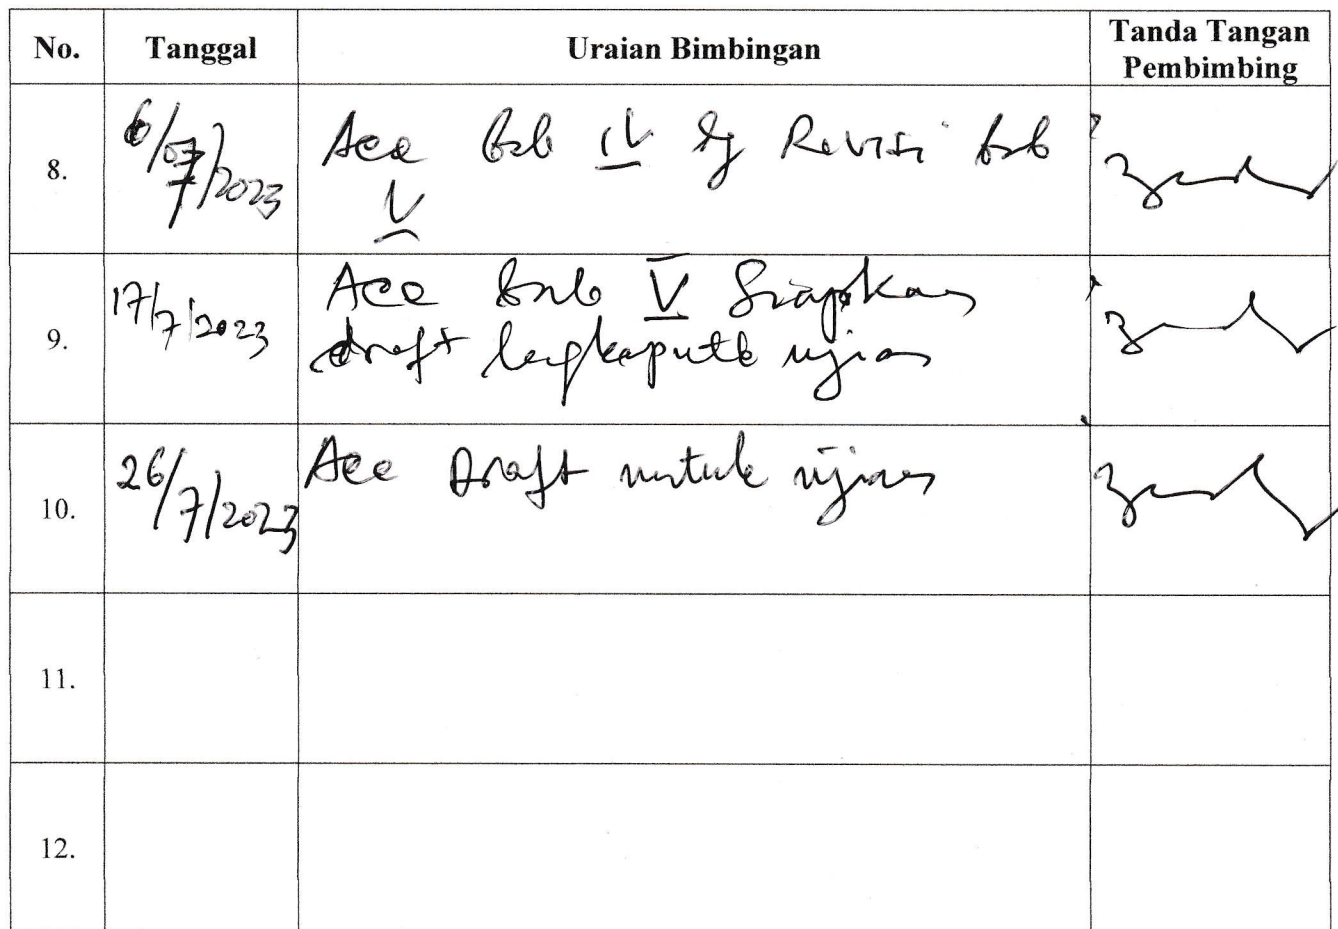 No. Tanggal Uraian Bimbingan Tanda Tangan
Pembimbing
8. 6/7/2023 Acc Bab IV Revisi bab
V
9. 17/7/2023 Acc Bab V Siapkan
draft lengkap utk ujian
10. 26/7/2023 Acc Draft untuk ujian
11.
12.